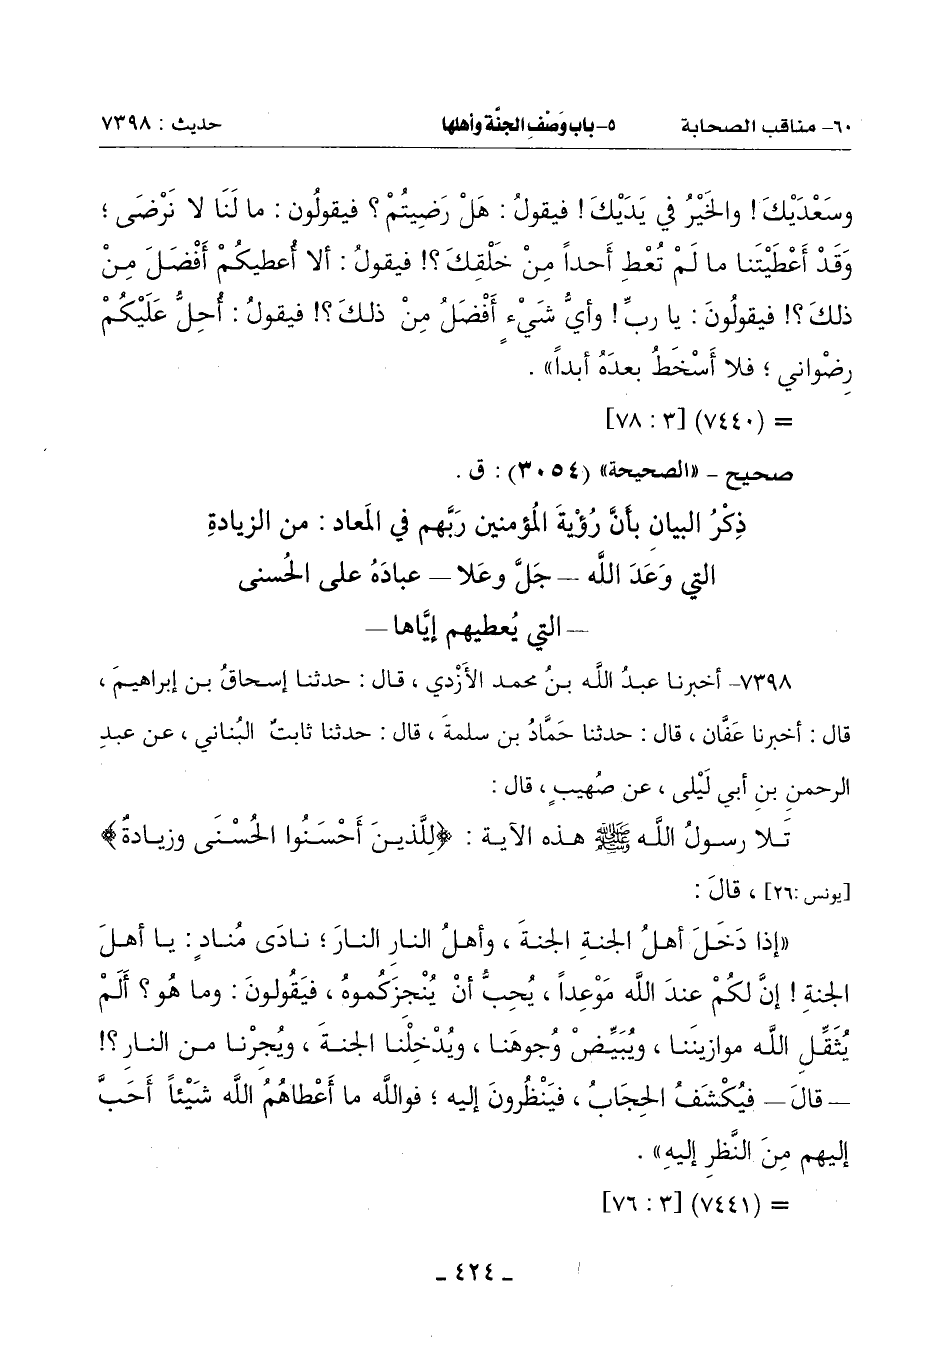 ٦٠- مناقب الصحابة ٥- باب وَصْفِ الجنَّة وأهلها حديث : ٧٣٩٨
وسَعْدَيْكَ ! والخَيْرُ في يَدَيْكَ ! فيقولُ : هَلْ رَضِيتُمْ ؟ فيقولُون : ما لَنَا لا نَرْضَى ؛
وَقَدْ أَعْطَيْتَنا ما لَمْ تُعْطِ أحداً مِنْ خَلْقِكَ ؟! فيقولُ : ألا أُعطيكُمْ أَفْضَلَ مِنْ
ذلكَ ؟! فيقولُونَ : يا ربِّ ! وأيُّ شَيْءٍ أَفْضَلُ مِنْ ذلكَ ؟! فيقولُ : أُحِلُّ عَلَيْكُمْ
رِضْواني ؛ فلا أَسْخَطُ بعدَهُ أبداً» .
= (٧٤٤٠) [٣ : ٧٨]
صحيح - «الصحيحة» (٣٠٥٤) : ق .
ذِكْرُ البيانِ بأنَّ رُؤْيةَ المُؤمنين رَبَّهم في المَعاد : من الزيادةِ
التي وَعَدَ الله – جَلَّ وعَلا – عبادَهُ على الحُسنى
– التي يُعطيهم إيَّاها –
٧٣٩٨- أخبرنا عبدُ اللَّه بنُ محمد الأَزْدي ، قال : حدثنا إسحاقُ بن إبراهيمَ ،
قال : أخبرنا عَفَّان ، قال : حدثنا حَمَّادُ بن سلمةَ ، قال : حدثنا ثابتٌ البُناني ، عن عبدِ
الرحمنِ بنِ أبي لَيْلى ، عن صُهيبٍ ، قال :
تَلا رسولُ اللَّه ﷺ هذه الآية : ﴿لِلَّذينَ أَحْسَنُوا الحُسْنَى وزيادةٌ﴾
[يونس :٢٦] ، قالَ :
«إذا دَخَلَ أهلُ الجنةِ الجنةَ ، وأهلُ النارِ النارَ ؛ نادَى مُنادٍ : يا أهلَ
الجنةِ ! إنَّ لكُمْ عندَ اللَّه مَوْعِداً ، يُحِبُّ أنْ يُنْجِزَكُموهُ ، فيَقُولونَ : وما هُو ؟ أَلَمْ
يُثَقِّلِ اللَّه موازينَنا ، ويُبَيِّضْ وُجوهَنا ، ويُدْخِلْنا الجنةَ ، ويُجِرْنا من النار ؟!
– قالَ – فيُكْشَفُ الحِجابُ ، فيَنْظُرونَ إليه ؛ فوالله ما أَعْطاهُمُ الله شَيْئاً أَحَبَّ
إليهم مِنَ النَّظرِ إليهِ» .
= (٧٤٤١) [٣ : ٧٦]
- ٤٢٤ -